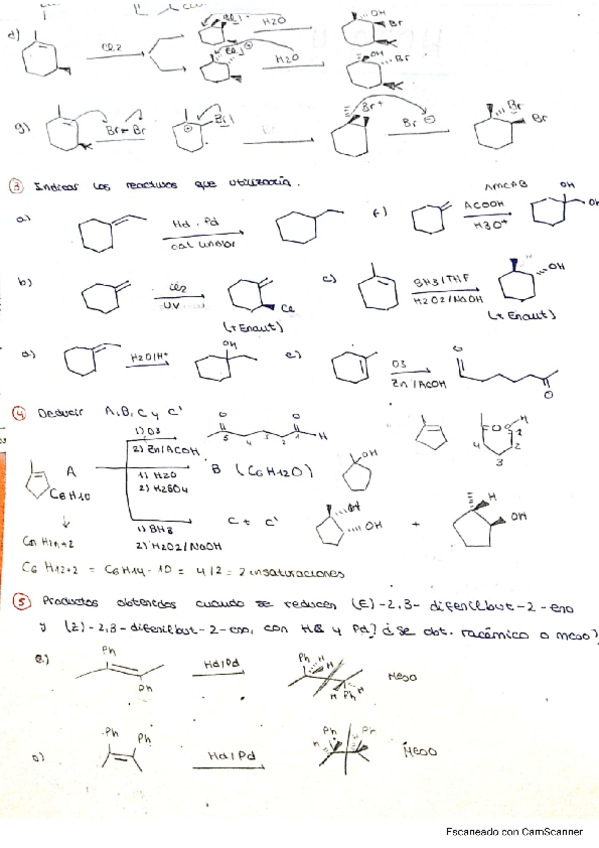 d) Cl2 H2O OH Br
H2O OH Br
g) Br-Br Br Br+ Br⊖ Br Br
③ Indicar los reactivos que utilizaría.
a) H2 · Pd cat Lindlar
f) AMCPB ACOOH H3O+ OH OH
b) Cl2 UV Cl (+ Enant)
c) BH3/THF H2O2/NaOH OH (+ Enant)
d) H2O/H+ OH
e) O3 Zn/ACOH O O
④ Deducir A, B, C y C'
1) O3 2) Zn/ACOH O 5 4 3 2 1 O H
A C6H10
1) H2O 2) H2SO4 B (C6H12O) OH
1) BH3 2) H2O2/NaOH C + C' H OH + H OH
Cn H2n+2
C6 H12+2 = C6H14 - 10 = 4/2 = 2 insaturaciones
⑤ Productos obtenidos cuando se reducen (E)-2,3-difenilbut-2-eno
y (Z)-2,3-difenilbut-2-eno, con H2 y Pd? ¿se obt. racémico o meso?
e) Ph Ph H2/Pd Ph H H Ph H Meso
Ph Ph H2/Pd Ph Ph H Meso
Escaneado con CamScanner